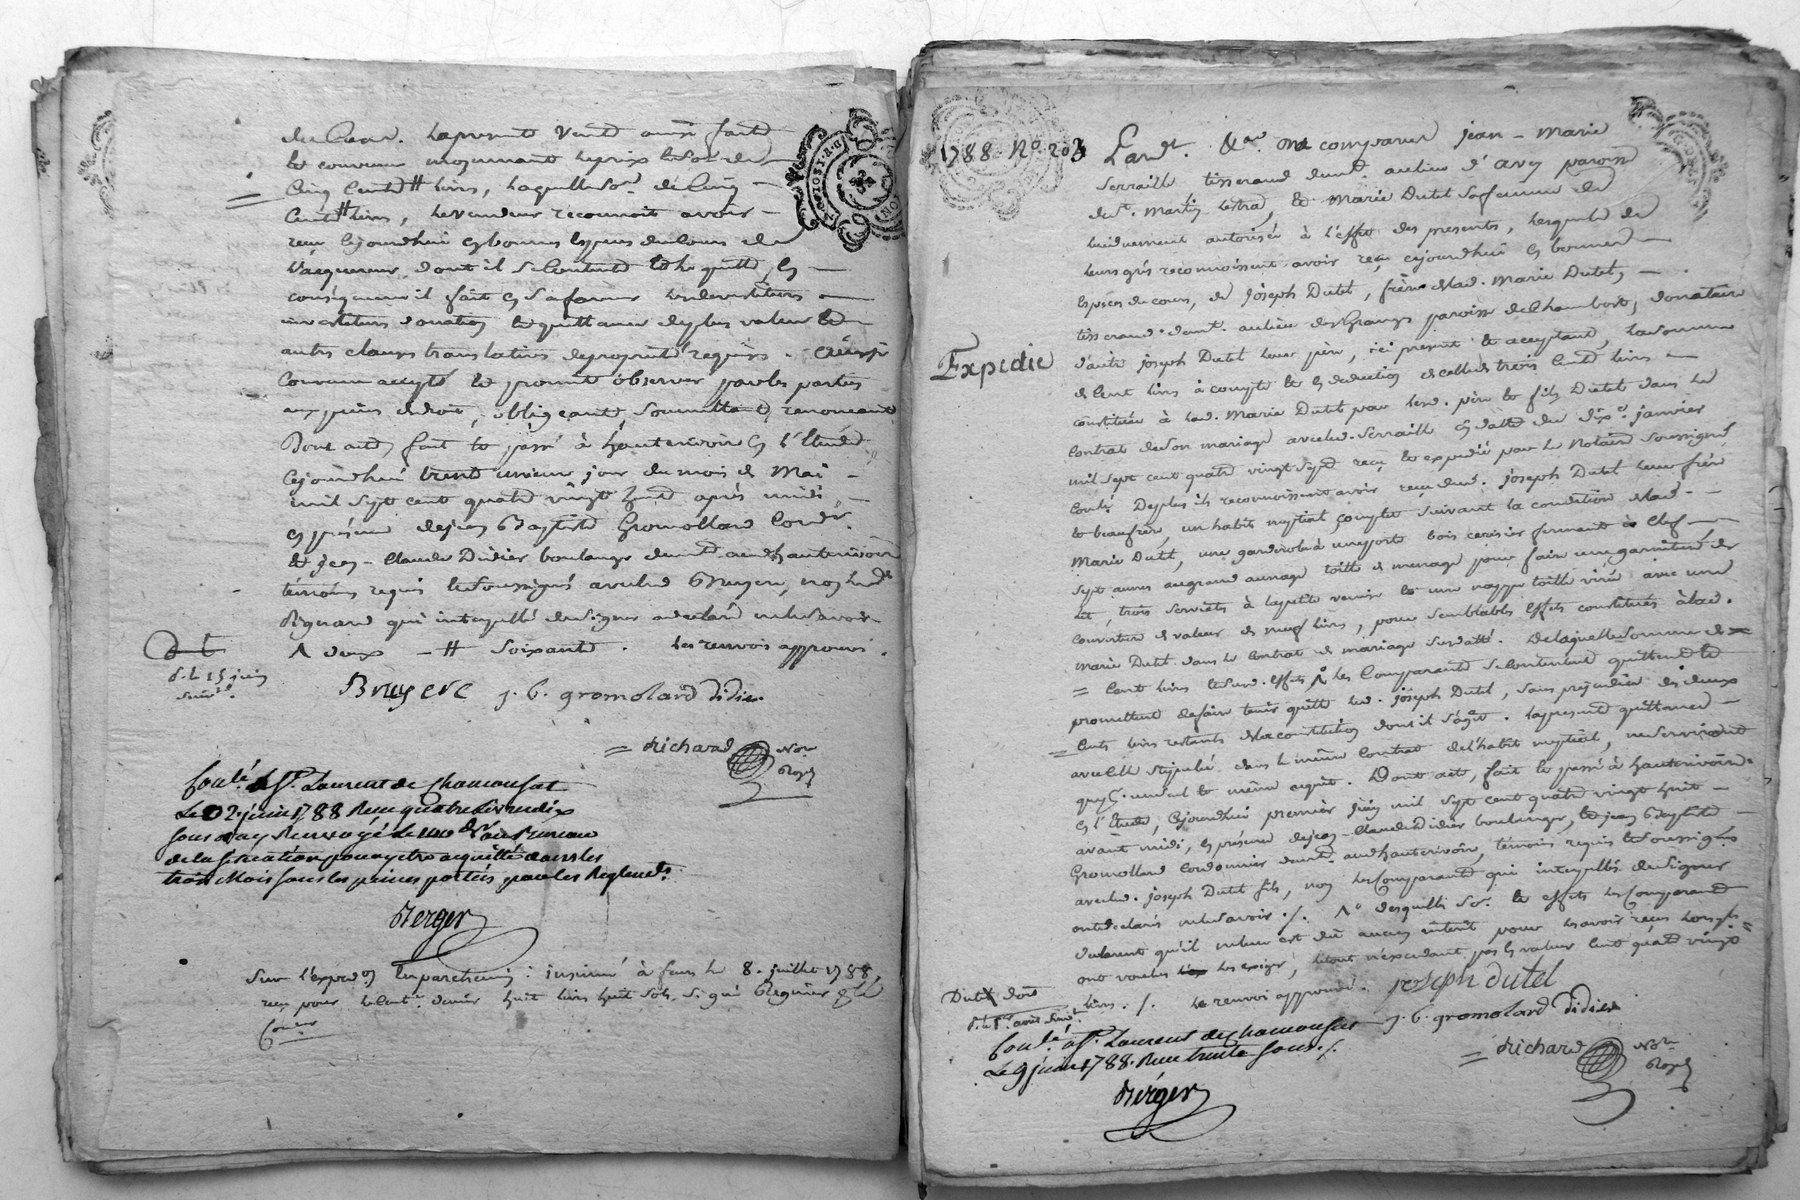 du Clerc. la present vente ainsi faite
et convenue moyennant le prix et somme de
Cinq Cents # livres, laquelle somme de Cinq
Cents # livres, le vendeur reconnoit avoir
reçu cejourdhui en bonnes especes du cours de
l'acquereur, dont il se Contente et le quitte, en
consequence il fait en sa faveur les devestitures
investiture donation et quittance de plus value et
autres clauses translatives de propriété requises. Ce ainsi
convenu accepté et promis observer par les parties
aux peines de droit, obligeant soumettant et renonceant
Dont acte, fait et passé à hauterivoire en l'Etude
Cejourdhui trente unieme jour du mois de Mai
mil sept cent quatre vingt huit après midi
en presence de jean Baptiste Gromollard Cordr.
et jean-Claude Didier boulanger demt. audt hauterivoire
témoins requis et soussignés avec led Bruyere, non led
qui interpellé de signer a declaré ne le savoir
deux # soixante. les renvois approuvés.
d. le 15 juin
Bruyere j. b. gromolard didier
= Richard Nore
Royal
Coulé à St. Laurent de Chamousset
Le 2 juin 1788 Reçu quatre livres dix
sous Renvoyé le au Bureau
de la situation pour y etre acquitté dans les
trois Mois sous les peines portées par les Reglemts.
Berger
Sur l'expeon. En parchemin: insinué à feurs le 8. juillet 1788,
reçu pour le cente. denier huit livres huit sols, signé Regnier
1788 No. 203 Pardt. &a. ont comparu jean-Marie
Serraille tisserand demt. au lieu d'avey paroisse
de St. Martin lestra, et Marie Dutel sa femme de
lui duement autorisée à l'effet des presentes, lesquels de
leurs grés reconnoissent avoir reçu cejourdhui en bonnes
Espèces du cours, de joseph Dutel, frère de lad. Marie Dutel,
tisserand demt. au lieu des Granges paroisse de Chambost, donataire
Expedié
d'autre joseph Dutel leur père, ici present et acceptant, la somme
de Cent livres à compte et en deduction de celle de trois Cents livres
constituée à lad. Marie Dutel par lesd. père et fils Dutel dans le
Contrat de son mariage avec led. Serraille en datte du dixe. janvier
mil sept cent quatre vingt sept reçu et expedié par le Notaire soussigné
Coulé. De plus ils reconnoissent avoir reçu dud. joseph Dutel leur frère
et beaufrère, un habit nuptial complet suivant la condition de lad.
Marie Dutel, une garderobe à une porte bois cerisier fermant à Clef
Sept aunes au grand aunage toille de menage pour faire une garniture de
lit, trois serviettes à la petite venise et une nappe toille avec une
couverture de valeur de neuf livres, pour semblables Effets constitués à lad.
Marie Dutel dans le Contrat de mariage susdatté. De laquelle somme de
= Cent livres et susd. effets les Comparants se contentent quittent et
promettent de faire tenir quitte led. joseph Dutel, sans prejudice des deux
= Cents livres restants de la constitution dont il s'agit. la presente quittance
avec celle stipulée dans le même Contrat de l'habit nuptial, ne serviront
que d'un seul et même acquit. Dont acte, fait et passé à hauterivoire
en l'Etude, Cejourdhui premier juin mil sept cent quatre vingt huit
avant midi, en presence de jean-Claude Didier boulanger, et jean Baptiste
Gromollard Cordonnier demt. audt hauterivoire, témoins requis et soussignés
avec led. joseph Dutel fils, non les Comparants qui interpellés de signer
ont declaré ne le savoir ./. desquelles so. et effets les Comparants
declarent qu'il ne leur est dû aucun interet pour les avoir reçus lorsqu'ils
ont voulu les exiger, le tout n'excedant pas la valeur Cent quatre vingt
Dutel doit livres ./. le renvoi approuvé. joseph dutel
j. b. gromolard didier
Coulé à St. Laurent de Chamousset
Le 9 juin 1788. Reçu trente sous ./.
= Richard Nore
Royal
Berger